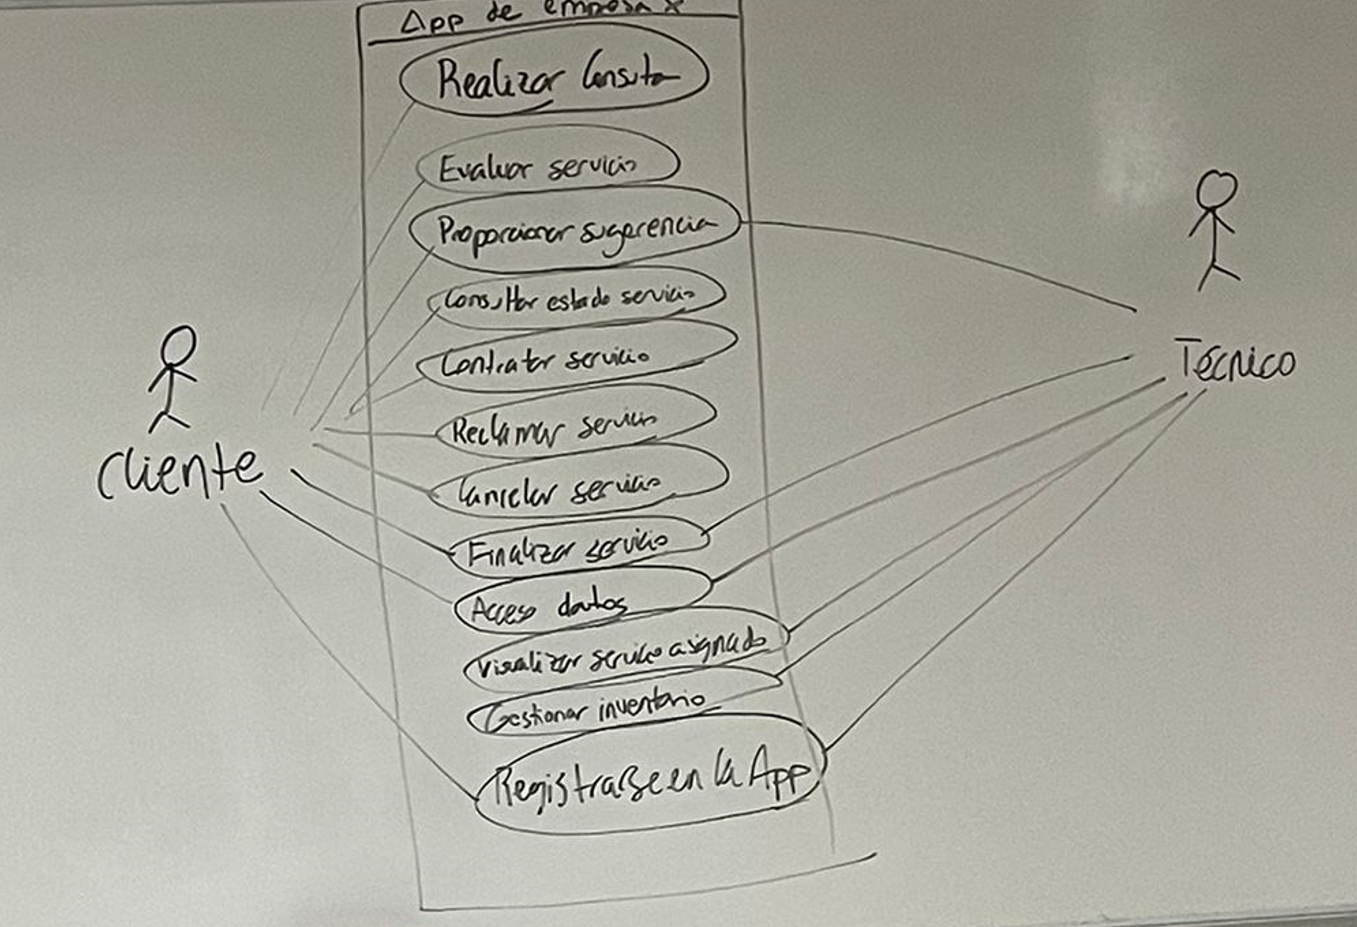 App de empresa x
Realizar Consulta
Evaluar servicio
Proporcionar sugerencia
Consultar estado servicio
Contratar servicio
Reclamar servicio
Cancelar servicio
Finalizar servicio
Acceso datos
Visualizar servicio asignado
Gestionar inventario
Registrarse en la App
Cliente
Técnico